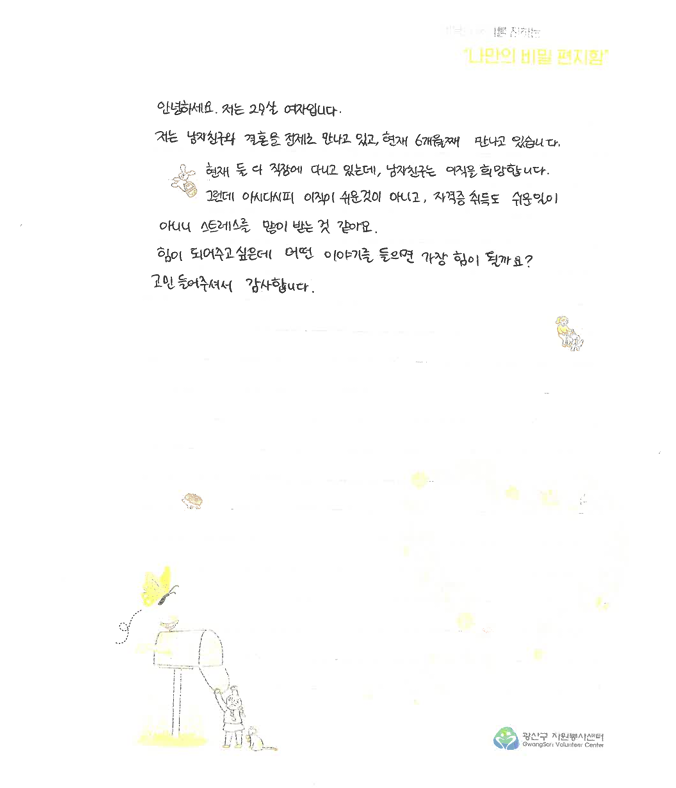 "나만의 비밀 편지함"
안녕하세요. 저는 29살 여자입니다.
저는 남자친구와 결혼을 전제로 만나고 있고, 현재 6개월째 만나고 있습니다.
현재 둘 다 직장에 다니고 있는데, 남자친구는 이직을 희망합니다.
그런데 아시다시피 이직이 쉬운것이 아니고, 자격증 취득도 쉬운일이
아니니 스트레스를 많이 받는 것 같아요.
힘이 되어주고싶은데 어떤 이야기를 들으면 가장 힘이 될까요?
고민들어주셔서 감사합니다.
광산구 자원봉사센터
GwangSan Volunteer Center